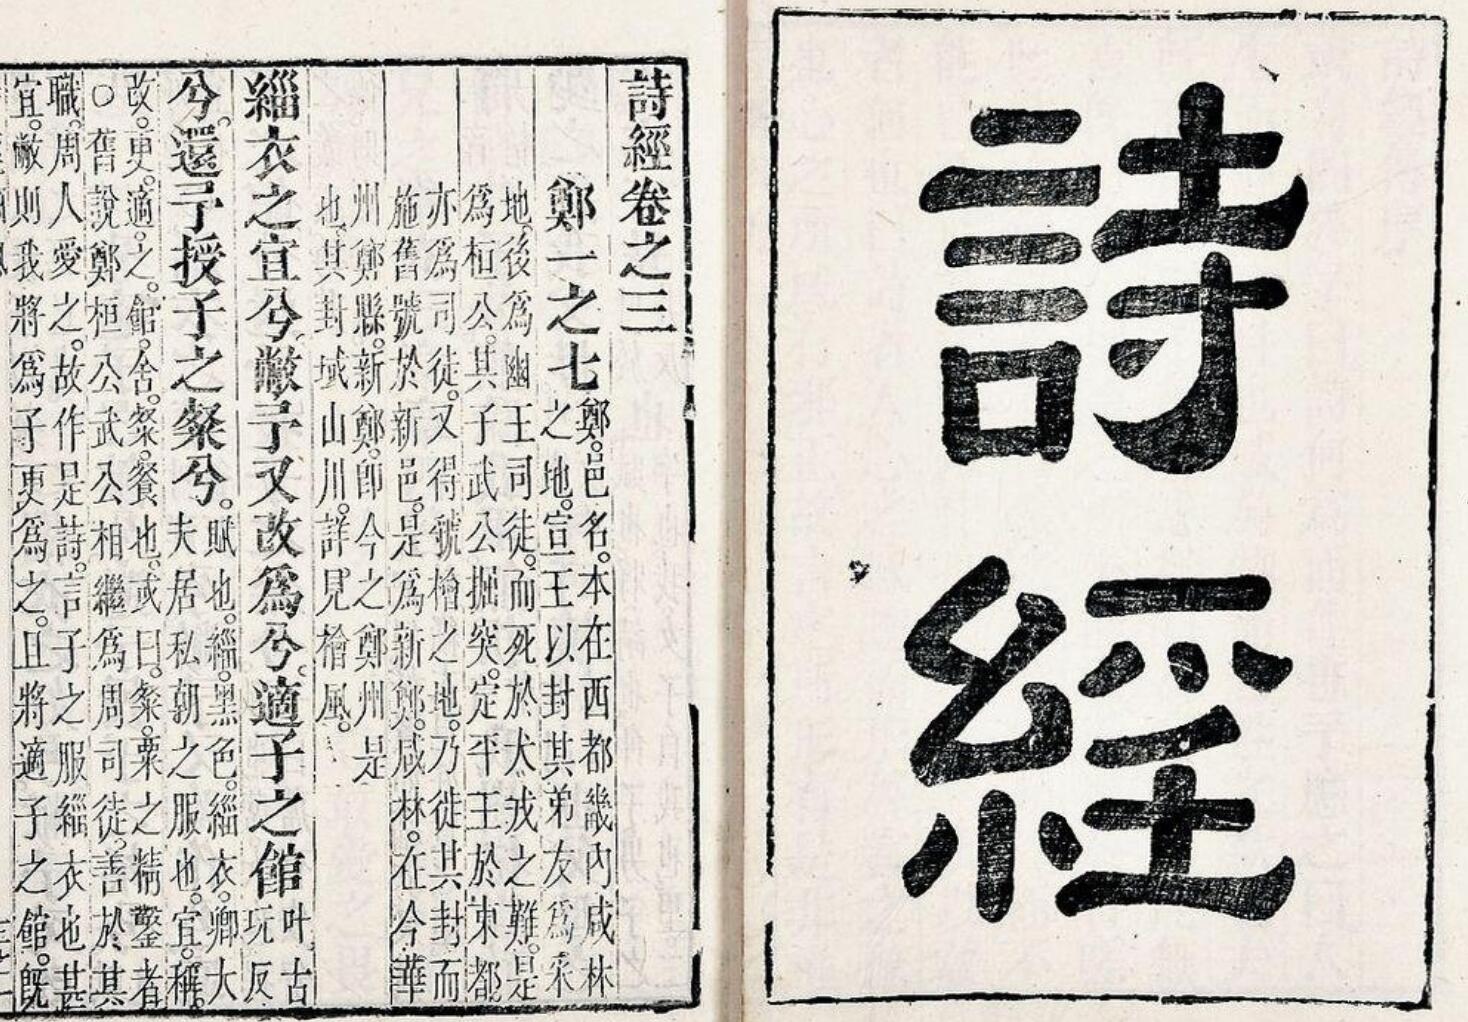 詩經
詩經卷之三
鄭一之七
鄭。邑名。本在西都畿內咸林
之地。宣王以封其弟友爲采
地。後爲幽王司徒。而死於犬戎之難。是
爲桓公。其子武公掘突。定平王於東都。
亦爲司徒。又得虢檜之地。乃徙其封而
施舊號於新邑。是爲新鄭。咸林。在今華
州鄭縣。新鄭。卽今之鄭州是
也。其封域山川。詳見檜風。
緇衣之宜兮。敝予又改爲兮。適子之館
叶。古
玩反
兮。還予授子之粲兮。
賦也。緇。黑色。緇衣。卿大
夫居私朝之服也。宜。稱。
改。更。適。之。館。舍。粲。餐也。或曰。粲。粟之精鑿者
○舊說鄭桓公武公相繼爲周司徒。善於其
職。周人愛之。故作是詩。言子之服緇衣也甚
宜。敝則我將爲子更爲之。且將適子之館。旣